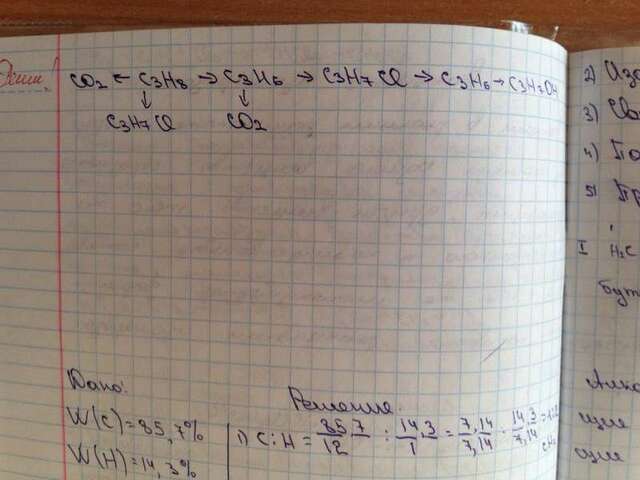 CO2 ← C3H8 → C3H6 → C3H7Cl → C3H6 → C3H7OH
↓ ↓
C3H7Cl CO2
Дано:
W(C)=85,7%
W(H)=14,3%
Решение.
1) C:H = 85,7/12 : 14,3/1 = 7,14/7,14 : 14,3/7,14 = 1:2
CH2
2)
3)
4)
5)
I H2C